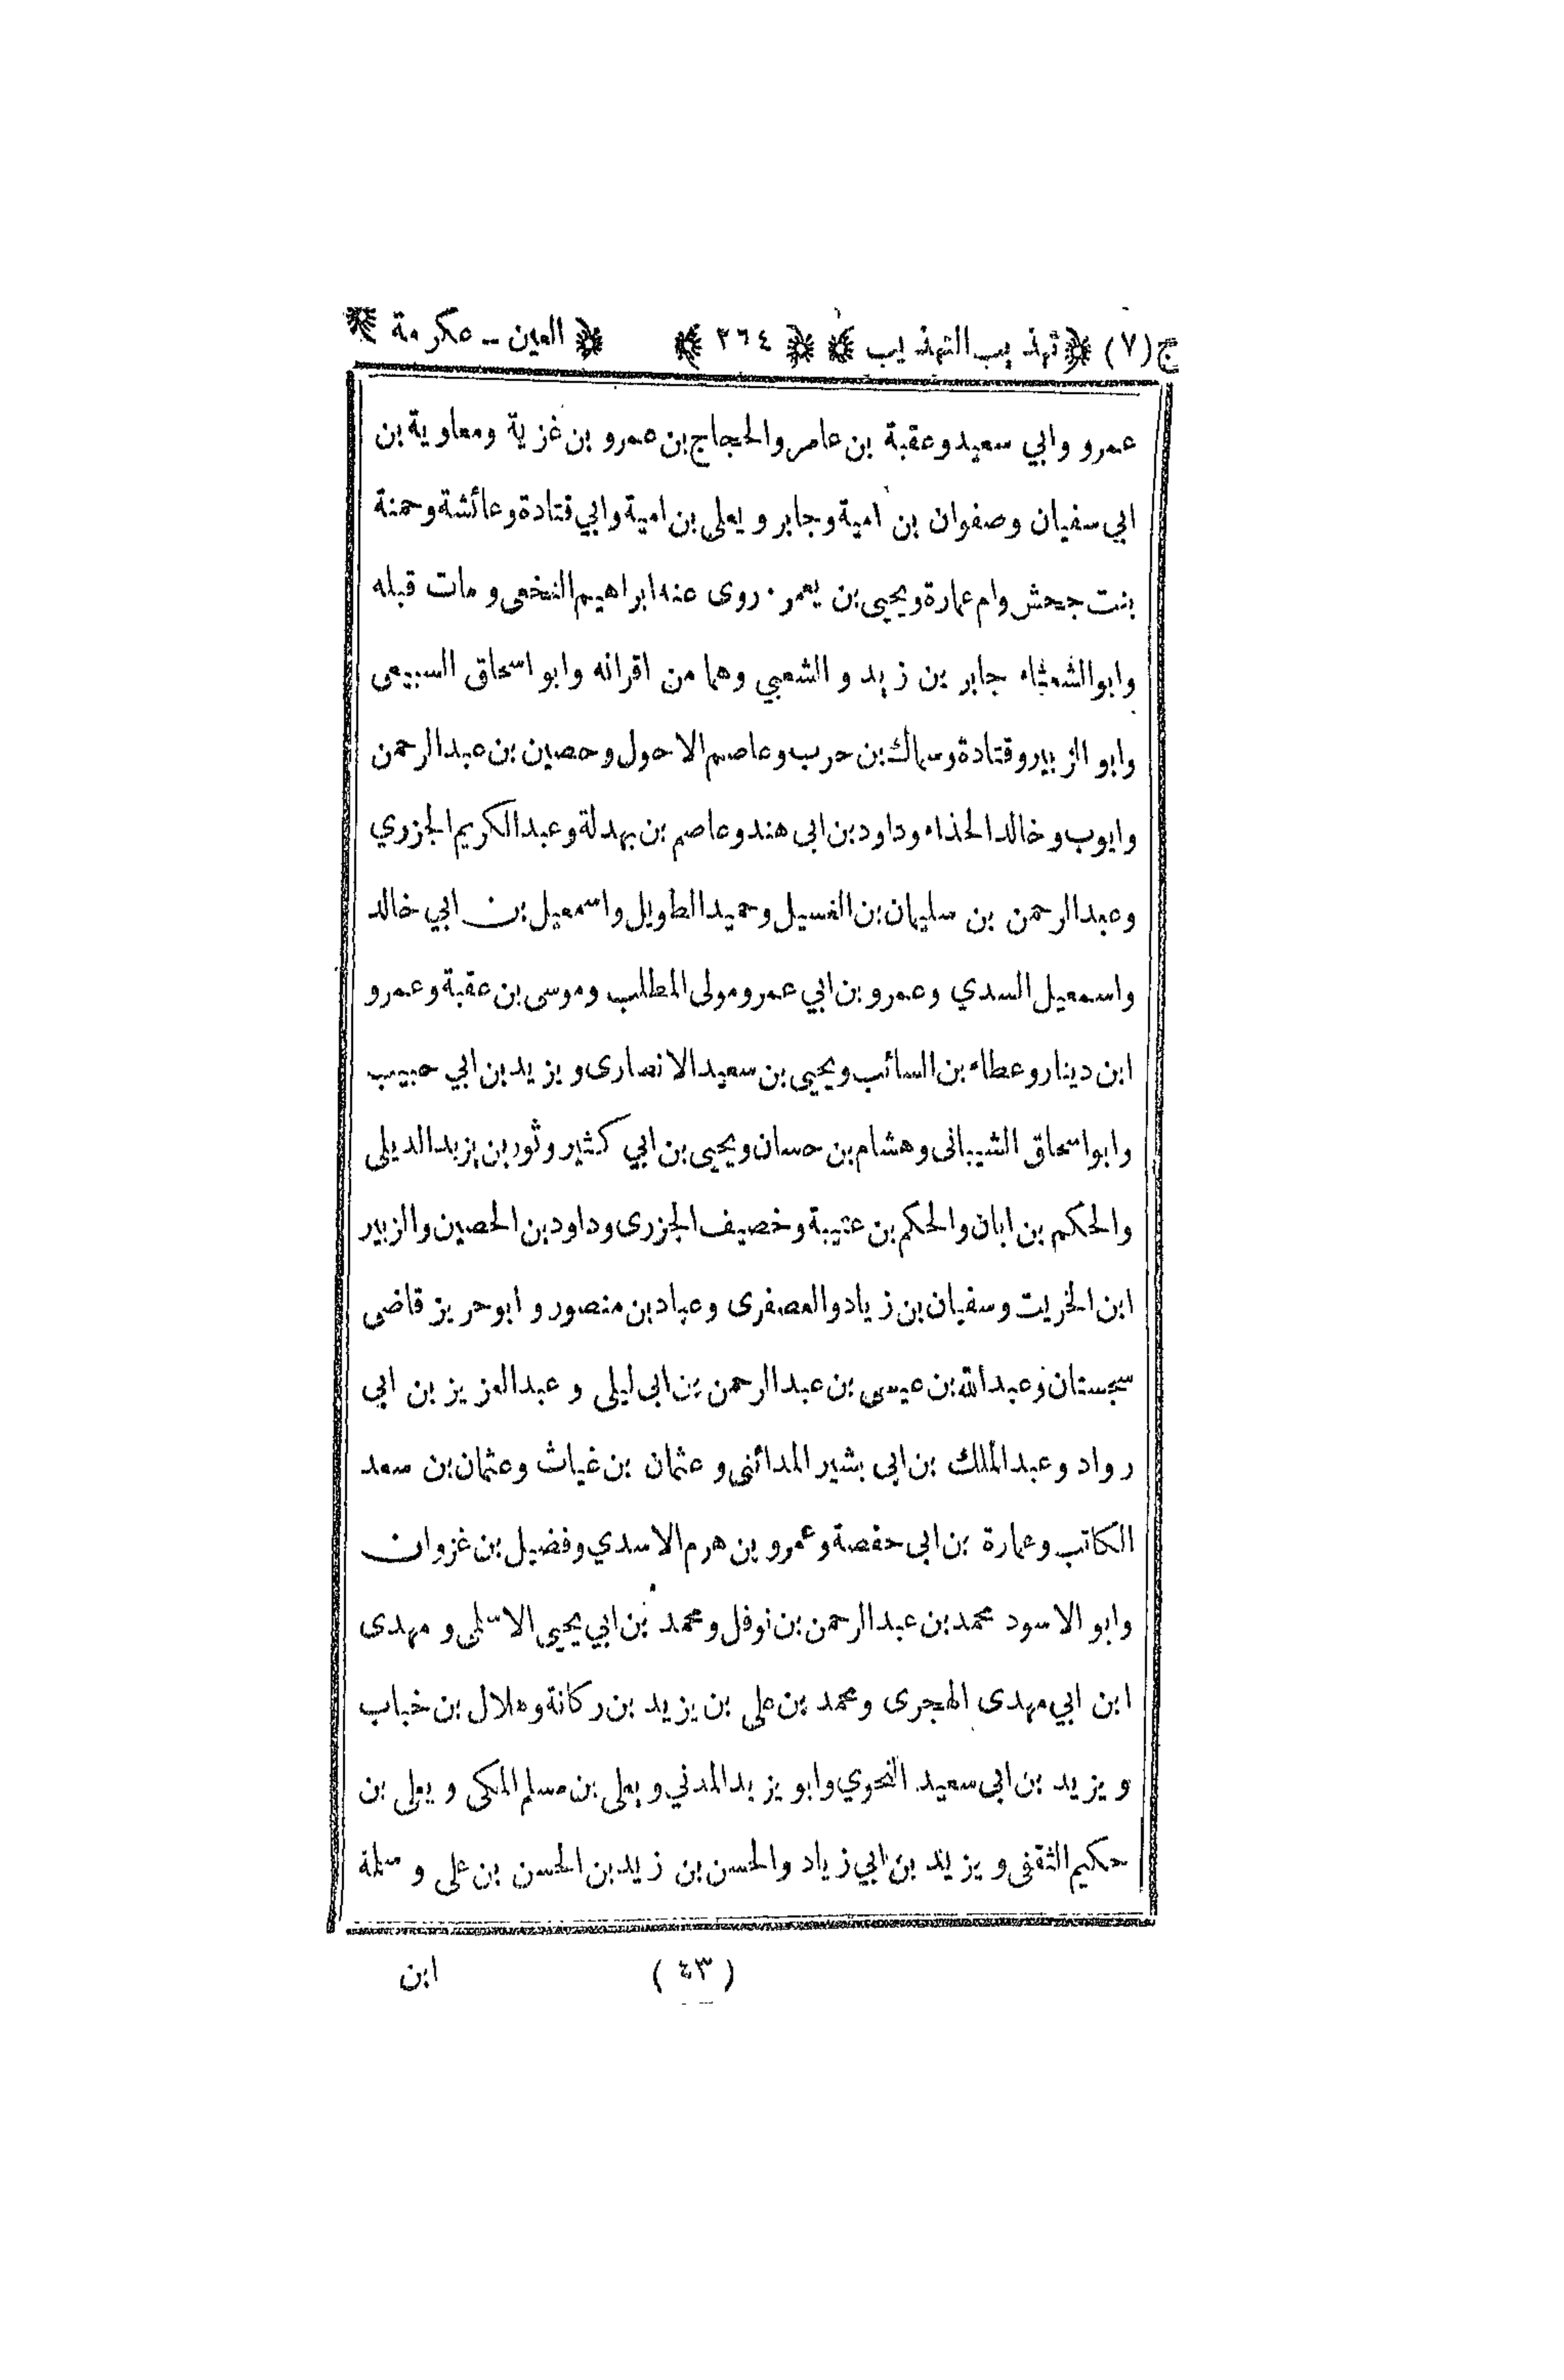 ج(٧) تهذيب التهذيب ٢٦٤ العين - عكرمة
عمرو وابي سعيد وعقبة بن عامر والحجاج بن عمرو بن غزية ومعاوية بن
ابي سفيان وصفوان بن امية وجابر و يعلى بن امية وابي قتادة وعائشة وحمنة
بنت جحش وام عمارة ويحيى بن يعمر · روى عنه ابراهيم النخعى و مات قبله
وابو الشعثاء جابر بن زيد و الشعبي وهما من اقرانه وابو اسحاق السبيعى
وابو الزبير وقتادة وسماك بن حرب وعاصم الاحول وحصين بن عبدالرحمن
وايوب وخالد الحذاء وداود بن ابى هند وعاصم بن بهدلة وعبد الكريم الجزري
وعبدالرحمن بن سليمان بن الغسيل وحميد الطويل واسمعيل بن ابي خالد
واسمعيل السدي وعمرو بن ابي عمرو مولى المطلب وموسى بن عقبة وعمرو
ابن دينار وعطاء بن السائب ويحيى بن سعيد الانصارى ويزيد بن ابي حبيب
وابو اسحاق الشيبانى وهشام بن حسان ويحيى بن ابي كثير وثور بن يزيد الديلى
والحكم بن ابان والحكم بن عتيبة وخصيف الجزرى وداود بن الحصين والزبير
ابن الخريت وسفيان بن زياد والعصفرى وعباد بن منصور و ابو حريز قاضى
سجستان وعبدالله بن عيسى بن عبدالرحمن بن ابى ليلى و عبد العزيز بن ابي
رواد وعبد الملك بن ابى بشير المدائنى و عثمان بن غياث وعثمان بن سعد
الكاتب وعمارة بن ابى حفصة وعمرو بن هرم الاسدي وفضيل بن غزوان
وابو الاسود محمد بن عبدالرحمن بن نوفل ومحمد بن ابي يحيى الاسلمى و مهدى
ابن ابي مهدى الهجرى ومحمد بن على بن يزيد بن ركانة وهلال بن خباب
ويزيد بن ابى سعيد النحوي وابو يزيد المدني و يعلى بن مسلم المكى و يعلى بن
حكيم الثقفى ويزيد بن ابي زياد والحسن بن زيد بن الحسن بن على و سلمة
(٤٣) ابن